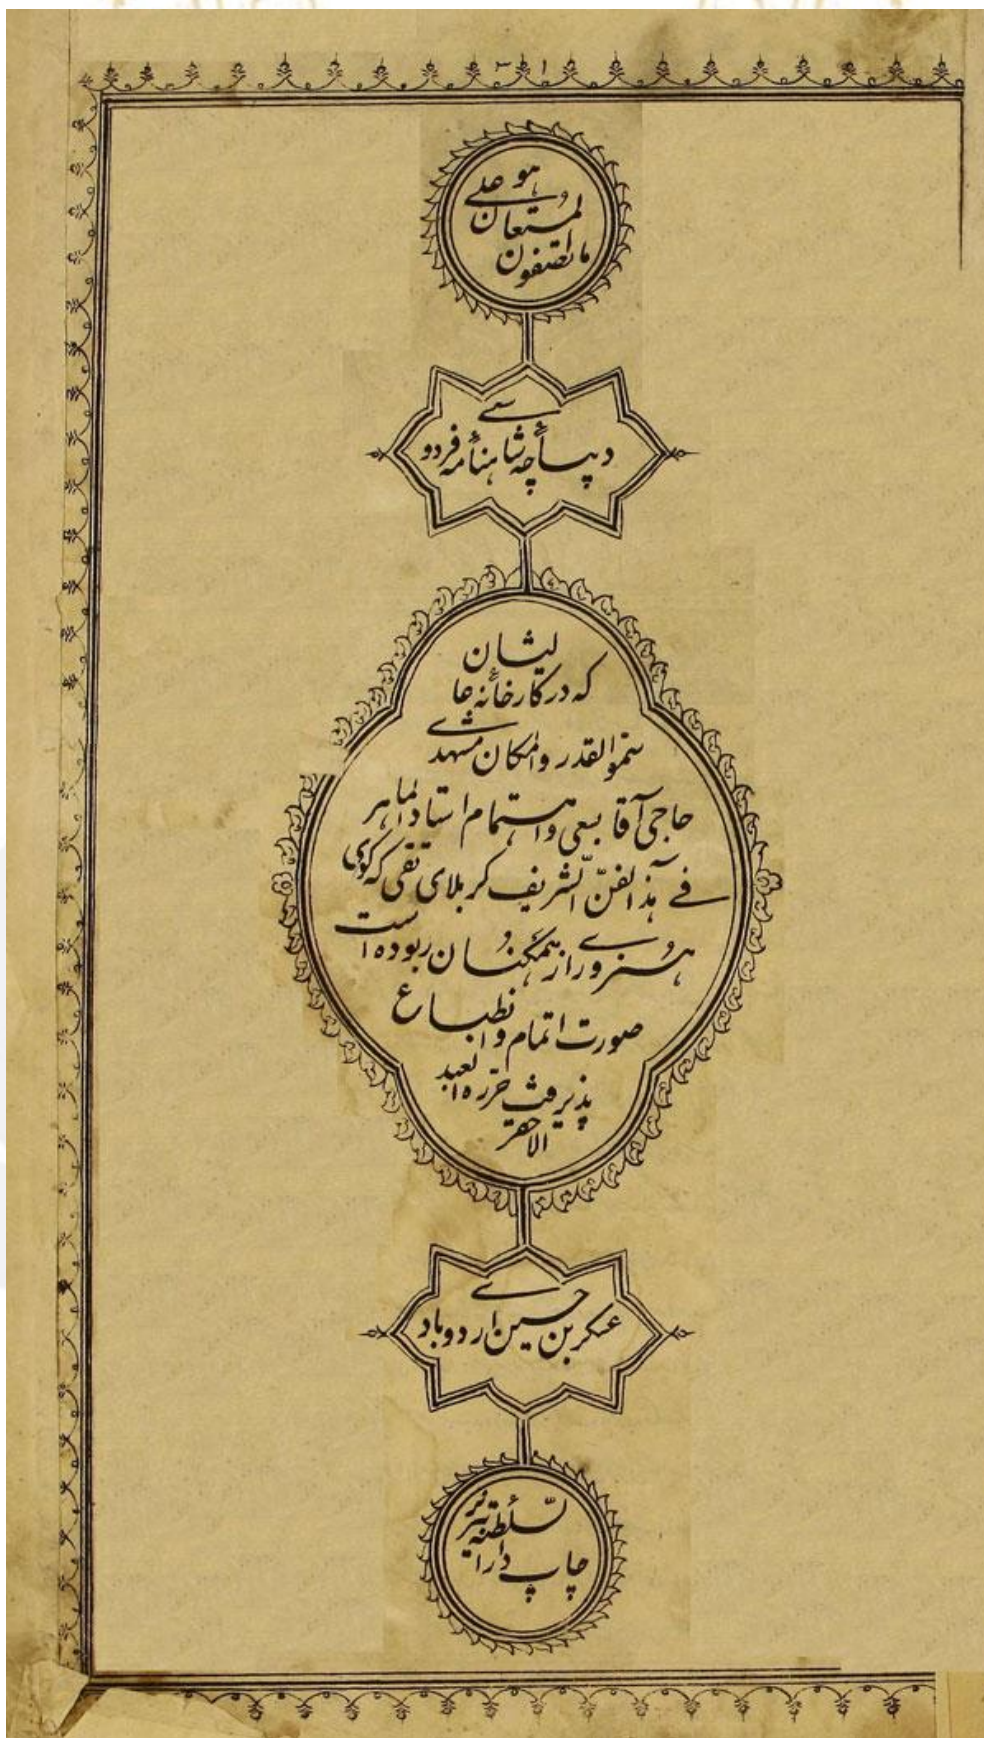 هو
المستعان علی
ما تصفون
دیباچهٔ شاهنامهٔ فردوسی
که در کارخانهٔ عالیشان
سمو القدر و المکان مشهدی
حاجی آقا بسعی و اهتمام استاد الماهر
فی هذا الفنّ الشریف کربلای تقی که گوی
هنروری از همگنان ربوده است
صورت اتمام و انطباع
پذیرفت حرّره العبد
الاحقر
عسکر بن حسین اردوبادی
چاپ دار السّلطنهٔ تبریز